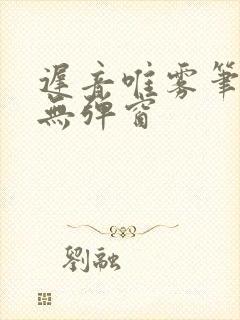 遲音唯雾筆
無弹窗
劉融